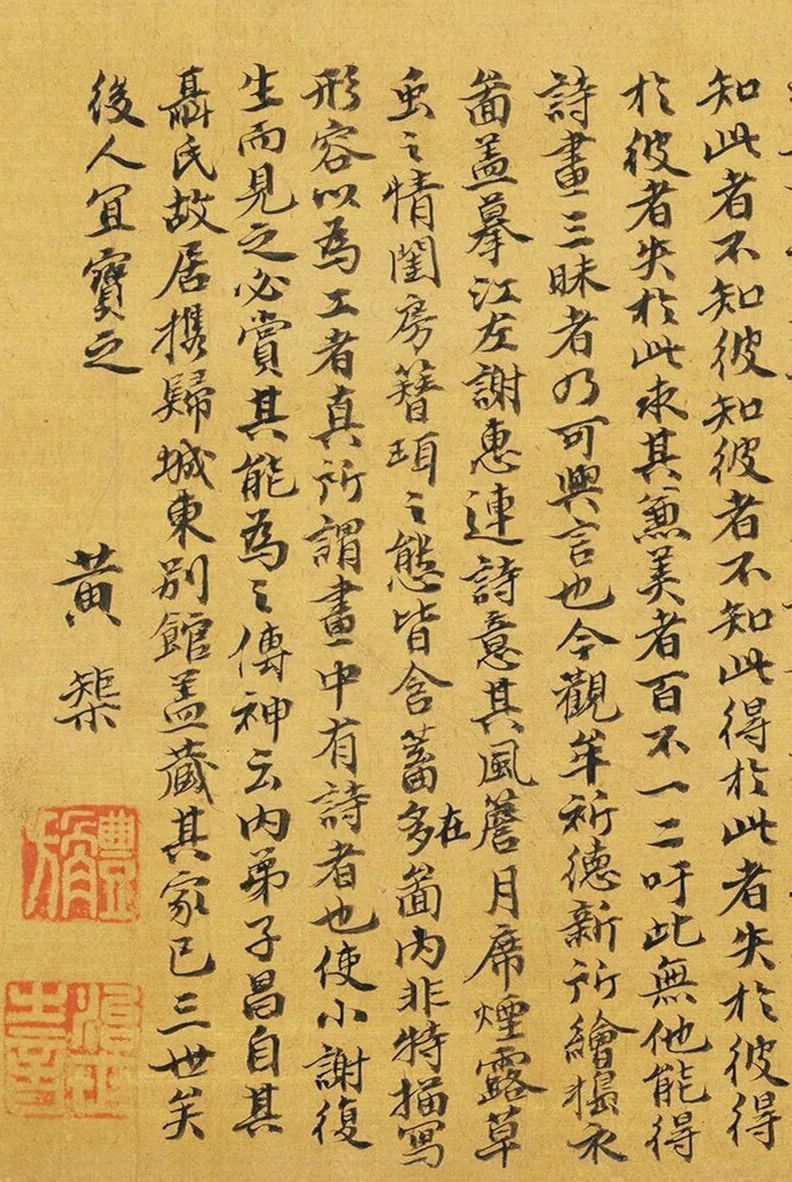 知此者不知彼知彼者不知此得於此者失於彼得
於彼者失於此求其兼美者百不一二吁此無他能得
詩畫三昧者乃可與言也今觀牟祈德新所繪搗衣
啚盖摹江左謝惠連詩意其風簷月席煙露草
虫之情閨房簪珥之態皆含蓄多在啚内非特描寫
形容以為工者真所謂畫中有詩者也使小謝復
生而見之必賞其能為之傳神云内弟子昌自其
聶氏故居携歸城東别館盖藏其家已三世矣
後人宜寳之
黄榘